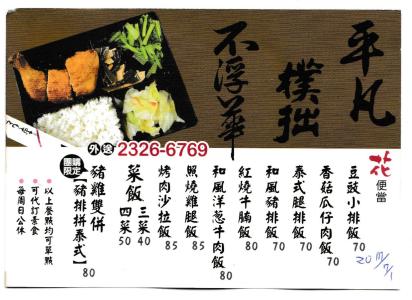 平凡
樸拙
不浮華
外送 2326-6769
花 便當
豆豉小排飯 70
香菇瓜仔肉飯 70
泰式腿排飯 70
和風豬排飯 70
紅燒牛腩飯 80
和風洋蔥牛肉飯 80
照燒雞腿飯 85
烤肉沙拉飯 85
菜飯 三菜 40
四菜 50
豬雞雙併
團購限定【豬排拼泰式】 80
• 以上餐點均可單點
• 可代訂素食
• 每周日公休